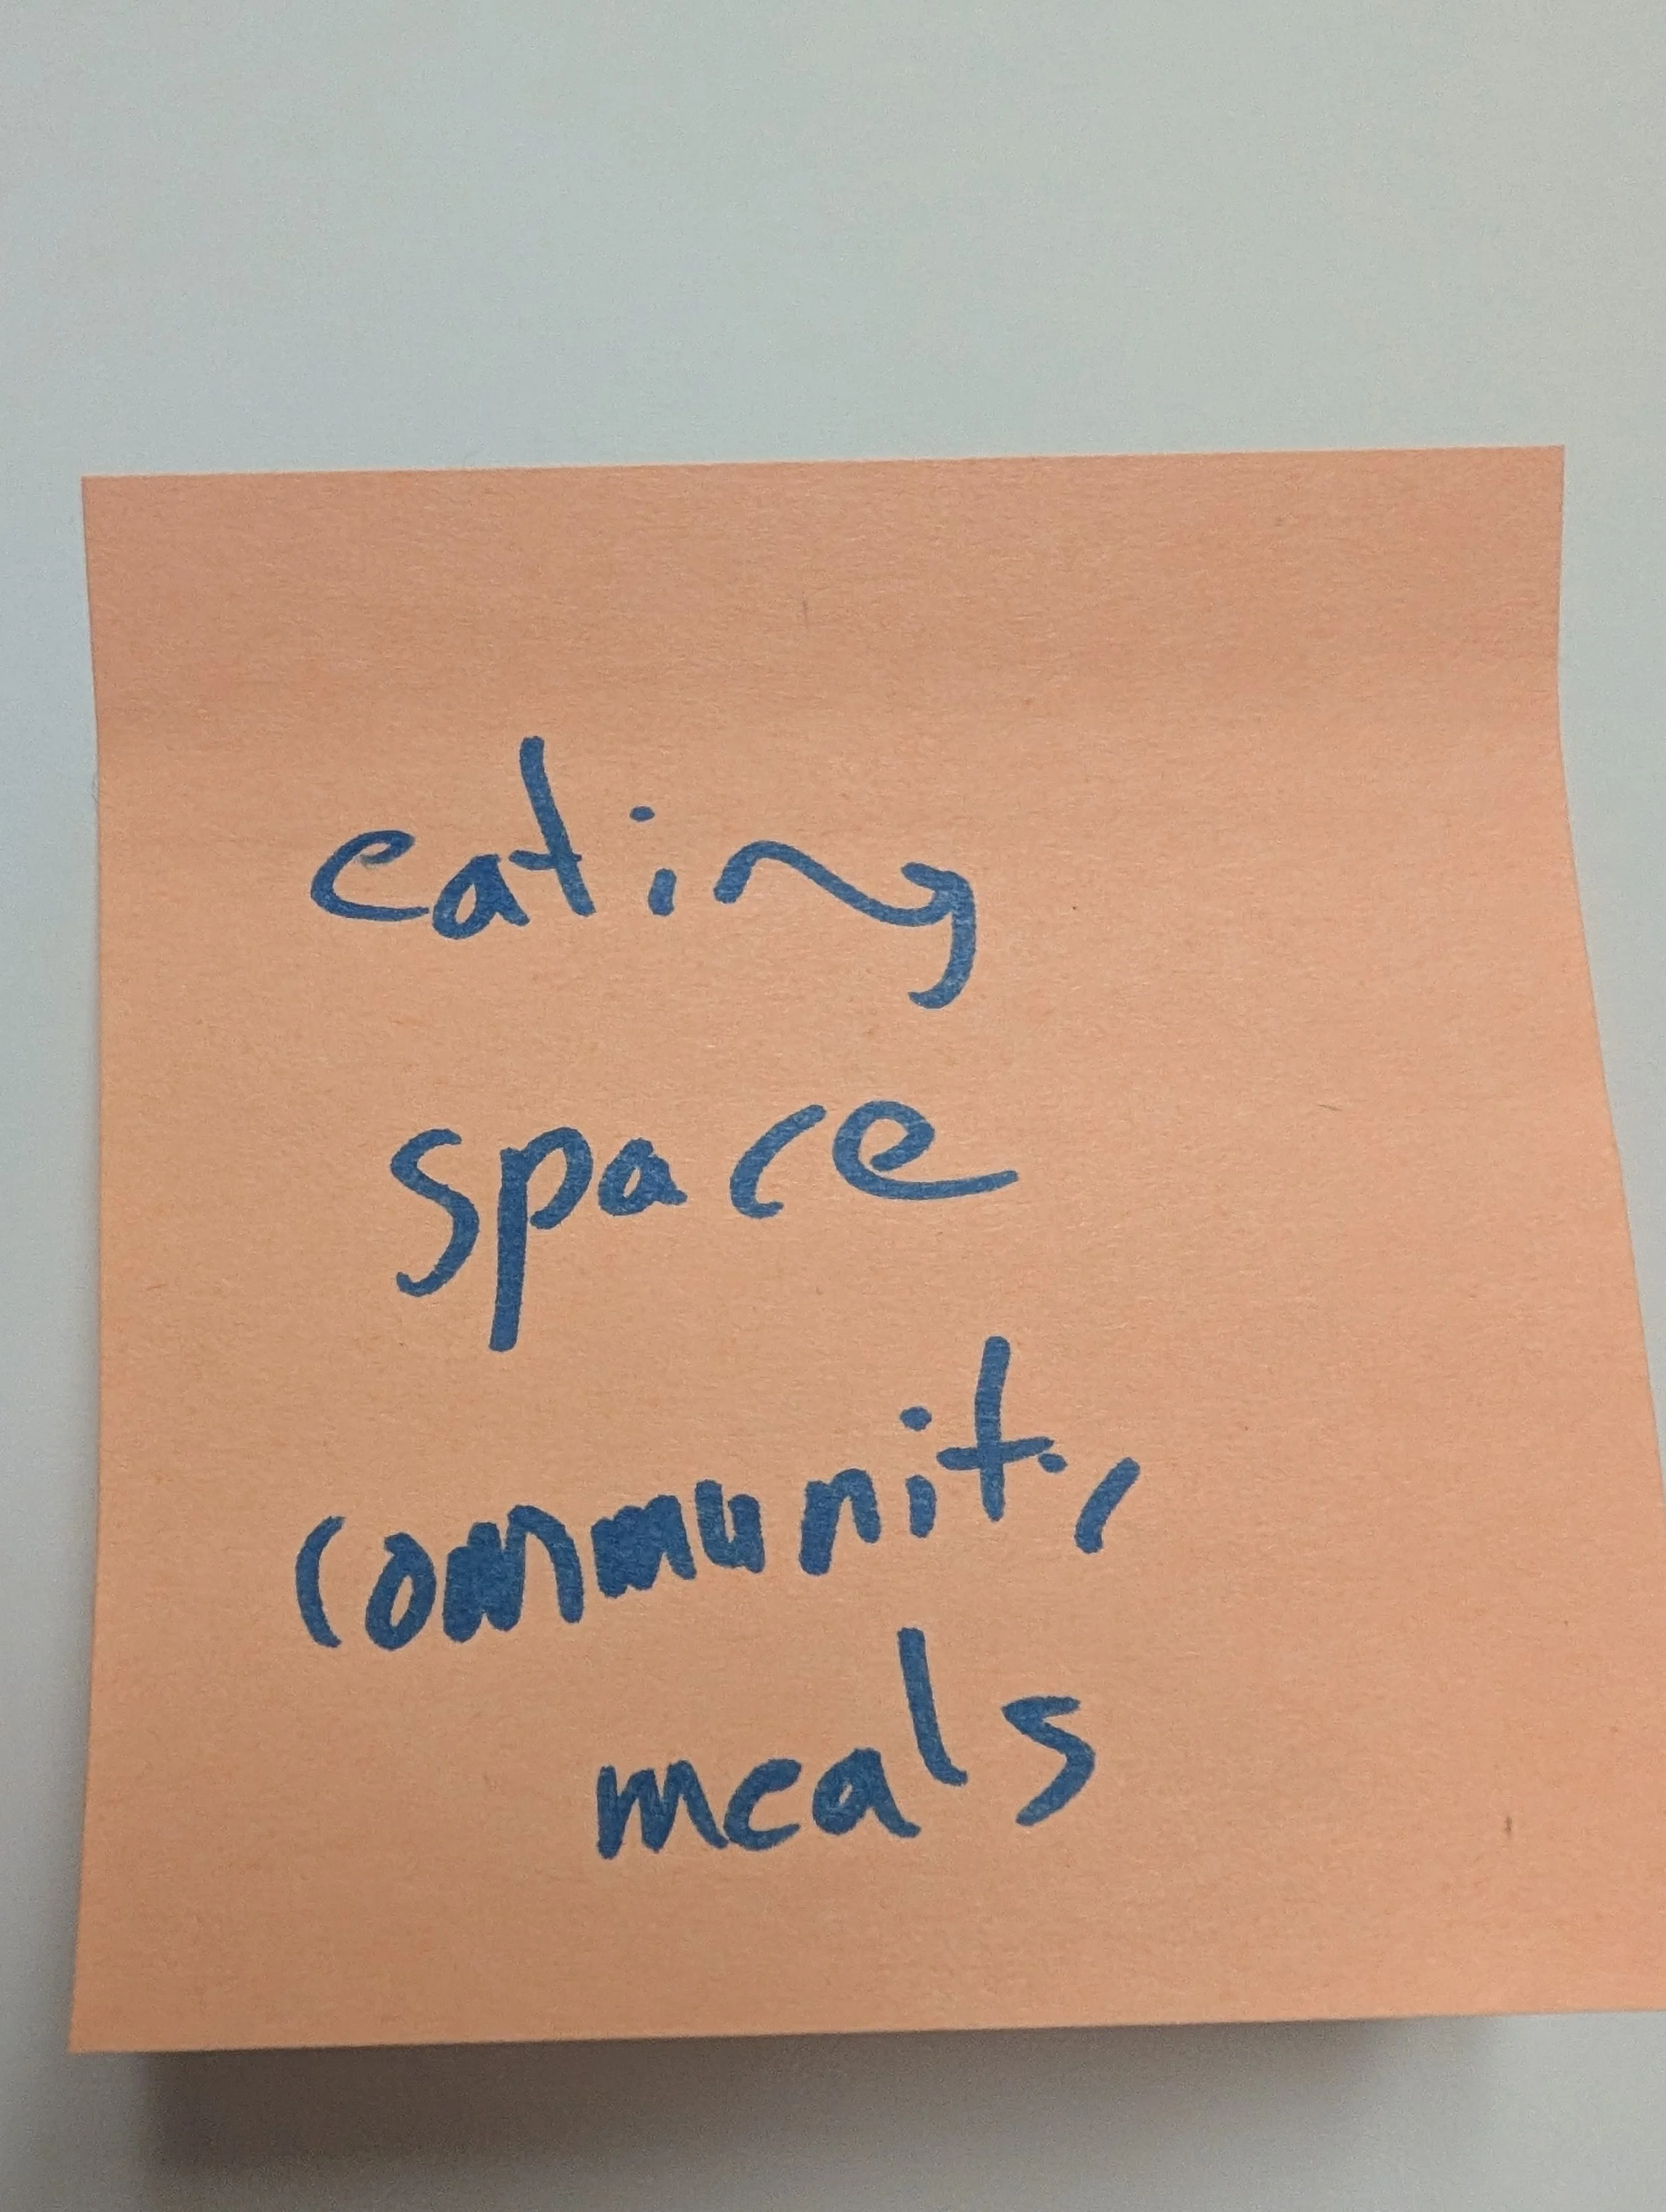 eating
space
community
meals